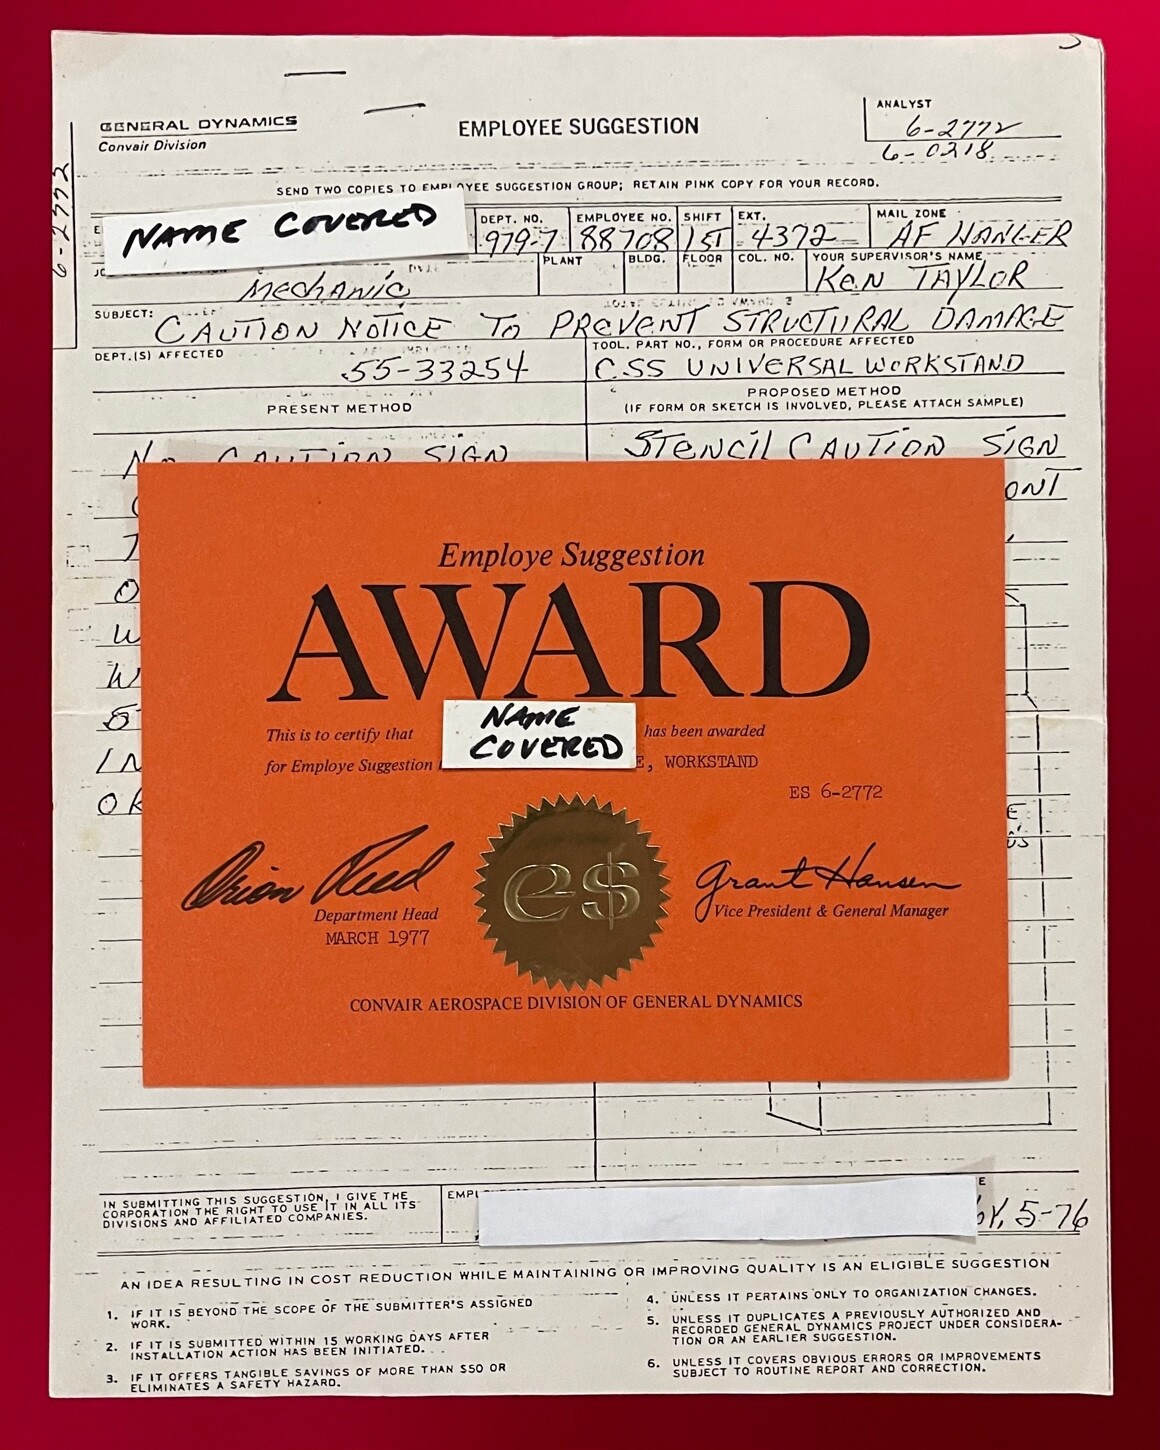 GENERAL DYNAMICS
Convair Division
EMPLOYEE SUGGESTION
ANALYST
6-2772
6-0218
6-2772
SEND TWO COPIES TO EMPLOYEE SUGGESTION GROUP; RETAIN PINK COPY FOR YOUR RECORD.
NAME COVERED
DEPT. NO. EMPLOYEE NO. SHIFT EXT. MAIL ZONE
979-7 88708 1ST 4372 AF HANGER
PLANT BLDG. FLOOR COL. NO. YOUR SUPERVISOR'S NAME
Mechanic KEN TAYLOR
SUBJECT: CAUTION NOTICE TO PREVENT STRUCTURAL DAMAGE
DEPT.(S) AFFECTED TOOL. PART NO., FORM OR PROCEDURE AFFECTED
55-33254 CSS UNIVERSAL WORKSTAND
PRESENT METHOD PROPOSED METHOD
(IF FORM OR SKETCH IS INVOLVED, PLEASE ATTACH SAMPLE)
No CAUTION SIGN STENCIL CAUTION SIGN
Employe Suggestion
AWARD
This is to certify that NAME COVERED has been awarded
for Employe Suggestion E, WORKSTAND
ES 6-2772
Orion Reed Grant Hansen
Department Head Vice President & General Manager
MARCH 1977
es
CONVAIR AEROSPACE DIVISION OF GENERAL DYNAMICS
IN SUBMITTING THIS SUGGESTION, I GIVE THE
CORPORATION THE RIGHT TO USE IT IN ALL ITS
DIVISIONS AND AFFILIATED COMPANIES.
5-76
AN IDEA RESULTING IN COST REDUCTION WHILE MAINTAINING OR IMPROVING QUALITY IS AN ELIGIBLE SUGGESTION
1. IF IT IS BEYOND THE SCOPE OF THE SUBMITTER'S ASSIGNED
WORK.
2. IF IT IS SUBMITTED WITHIN 15 WORKING DAYS AFTER
INSTALLATION ACTION HAS BEEN INITIATED.
3. IF IT OFFERS TANGIBLE SAVINGS OF MORE THAN $50 OR
ELIMINATES A SAFETY HAZARD.
4. UNLESS IT PERTAINS ONLY TO ORGANIZATION CHANGES.
5. UNLESS IT DUPLICATES A PREVIOUSLY AUTHORIZED AND
RECORDED GENERAL DYNAMICS PROJECT UNDER CONSIDERA-
TION OR AN EARLIER SUGGESTION.
6. UNLESS IT COVERS OBVIOUS ERRORS OR IMPROVEMENTS
SUBJECT TO ROUTINE REPORT AND CORRECTION.